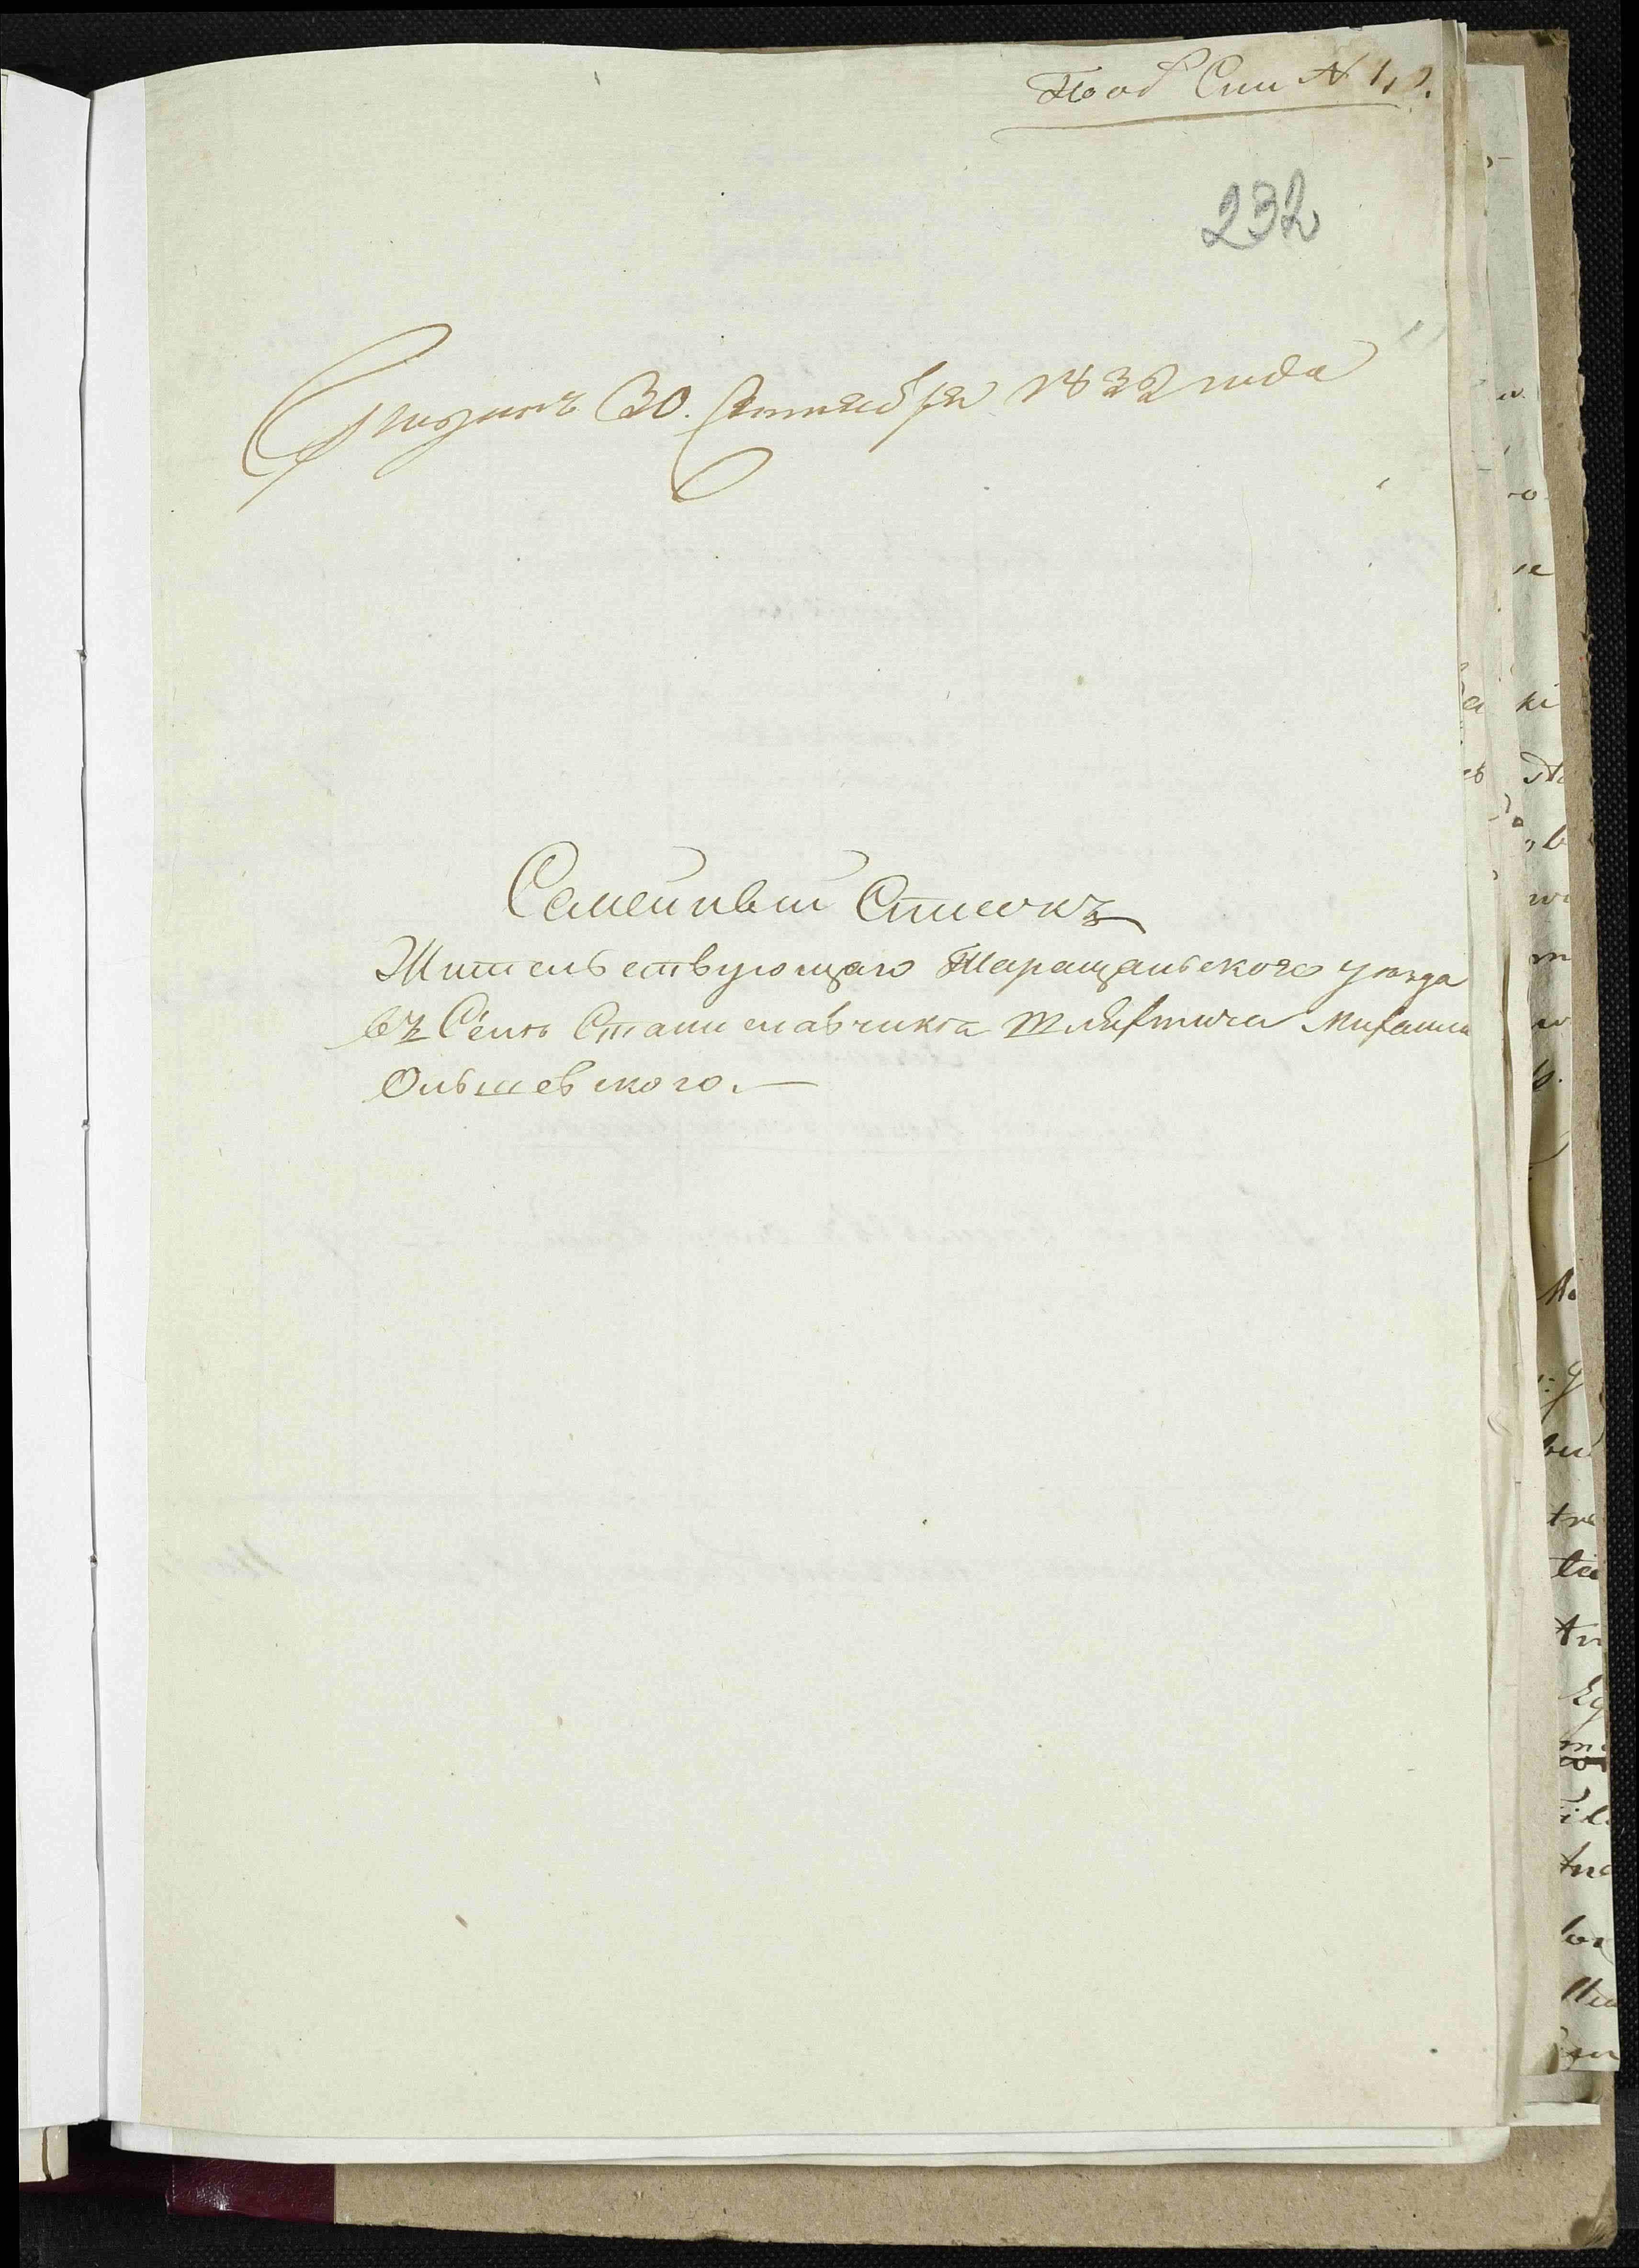 232
30. Сентября 1832 года
Семейный Списокъ
Жительствующаго Таращанского уѣзда
въ Селѣ Станиславчика Шляхтича Михаила
Ольшевского.—